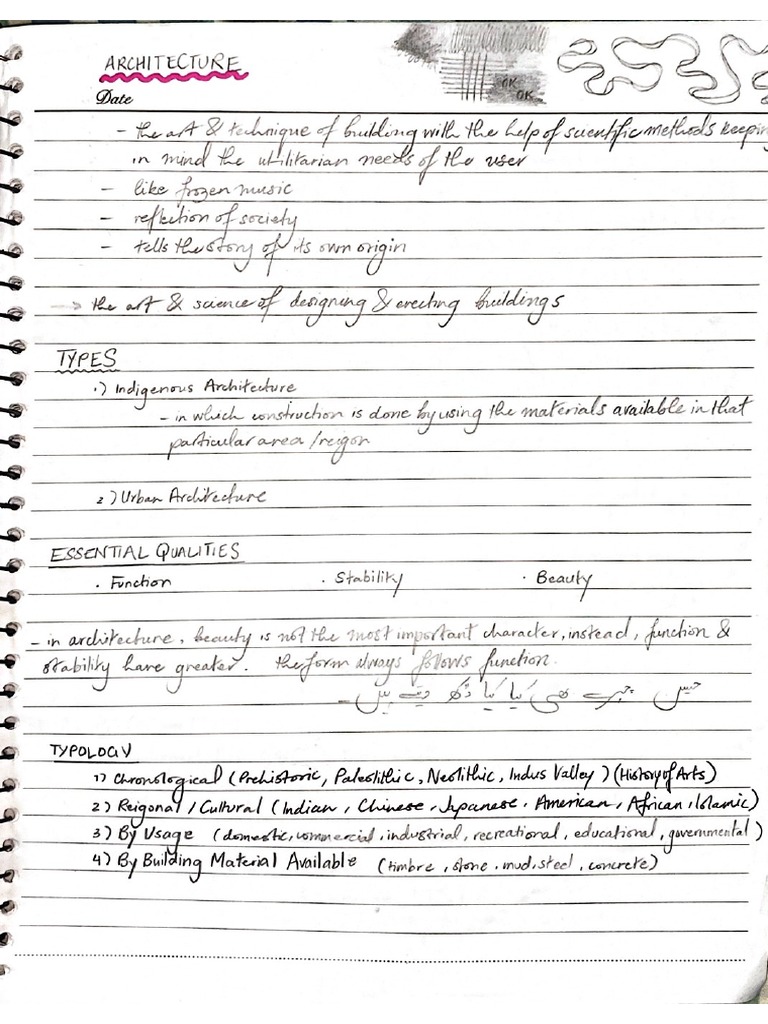 ARCHITECTURE
OK
OK
Date
- the art & technique of building with the help of scientific methods keeping
in mind the utilitarian needs of the user
- like frozen music
- reflection of society
- tells the story of its own origin
→ the art & science of designing & erecting buildings
TYPES
1) Indigenous Architecture
- in which construction is done by using the materials available in that
particular area / reigon
2) Urban Architecture
ESSENTIAL QUALITIES
· Function · Stability · Beauty
- in architecture, beauty is not the most important character, instead, function &
stability have greater. the form always follows function.
حسین چہرے بھی کیا کیا دکھ دیتے ہیں
TYPOLOGY
1) Chronological (Prehistoric, Paleolithic, Neolithic, Indus Valley) (History of Arts)
2) Reigonal / Cultural (Indian, Chinese, Japanese, American, African, Islamic)
3) By Usage (domestic, commercial, industrial, recreational, educational, governmental)
4) By Building Material Available (timbre, stone, mud, steel, concrete)